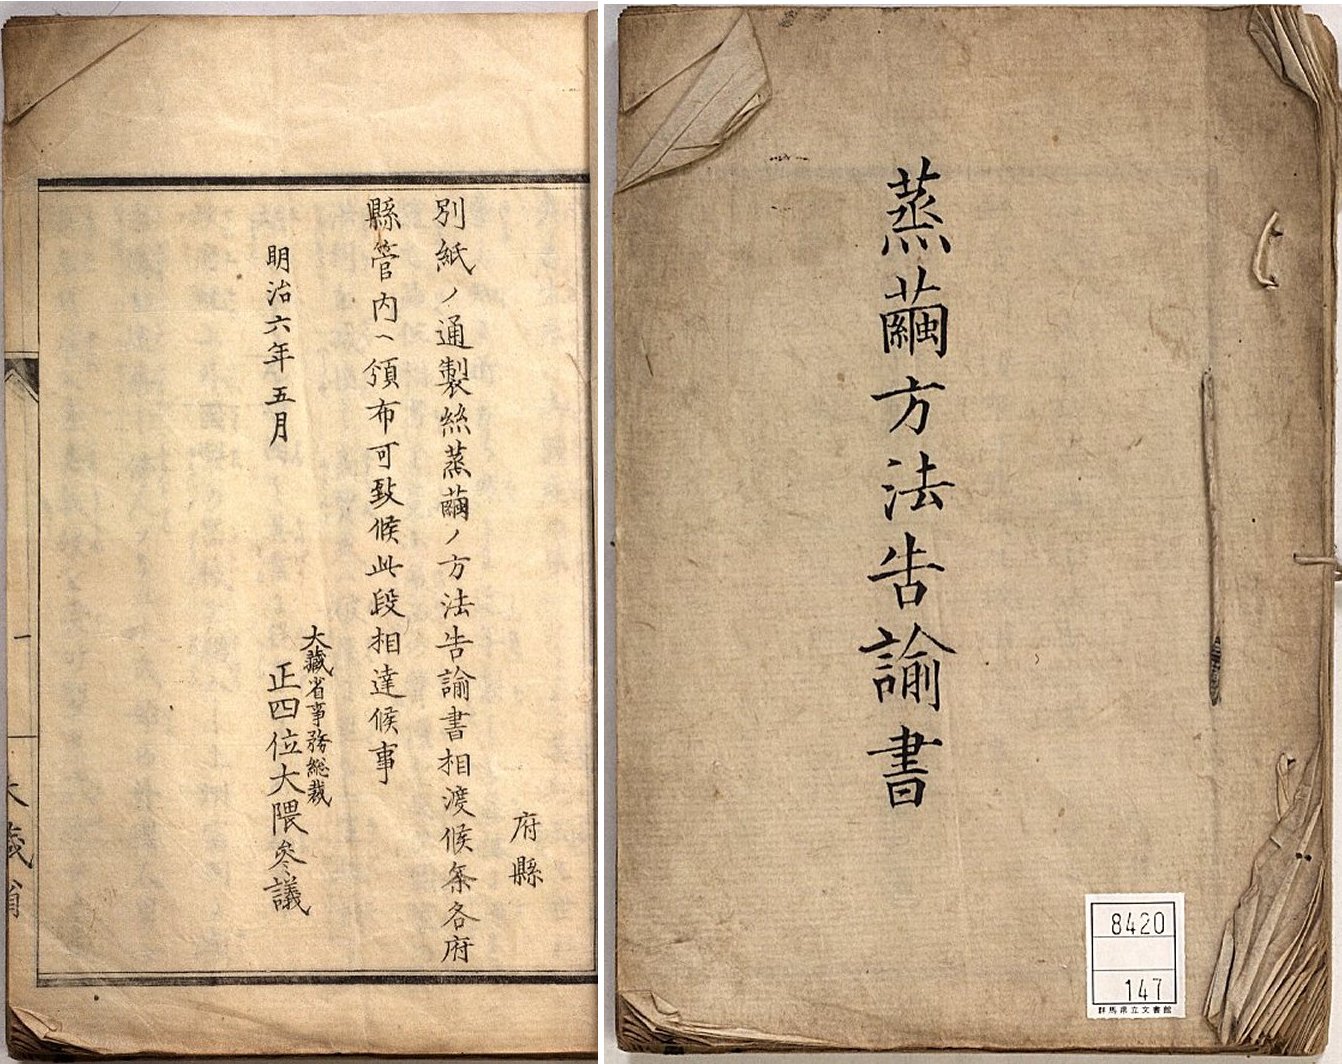 蒸繭方法告諭書
8420
147
群馬県立文書館
府縣
別紙ノ通製絲蒸繭ノ方法告諭書相渡候条各府
縣管内ヘ頒布可致候此段相達候事
明治六年五月
大藏省事務総裁
正四位大隈參議
一
大藏省